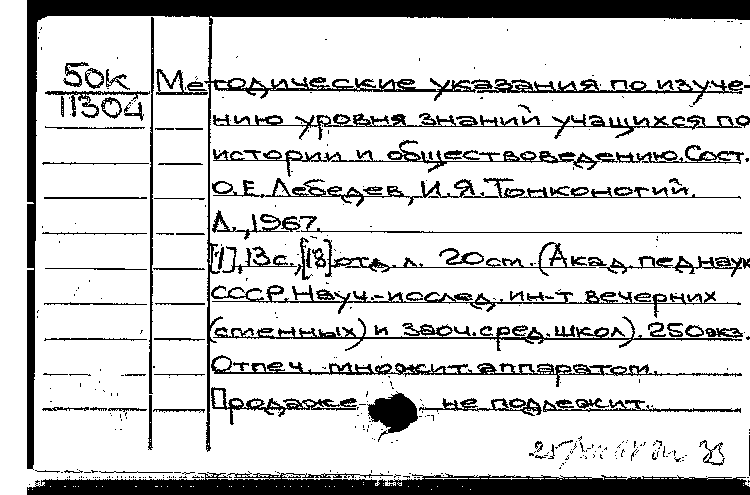 50к Методические указания по изуче-
11304 нию уровня знаний учащихся по
истории и обществоведению. Сост.
О.Е. Лебедев, И.Я. Тонконогий.
Л., 1967.
[1], 13с., [13] отд. л. 20см. (Акад. пед. наук
СССР. Науч.-исслед. ин-т вечерних
(сменных) и заоч. сред. школ). 250экз.
Отпеч. множит. аппаратом.
Продаже не подлежит.